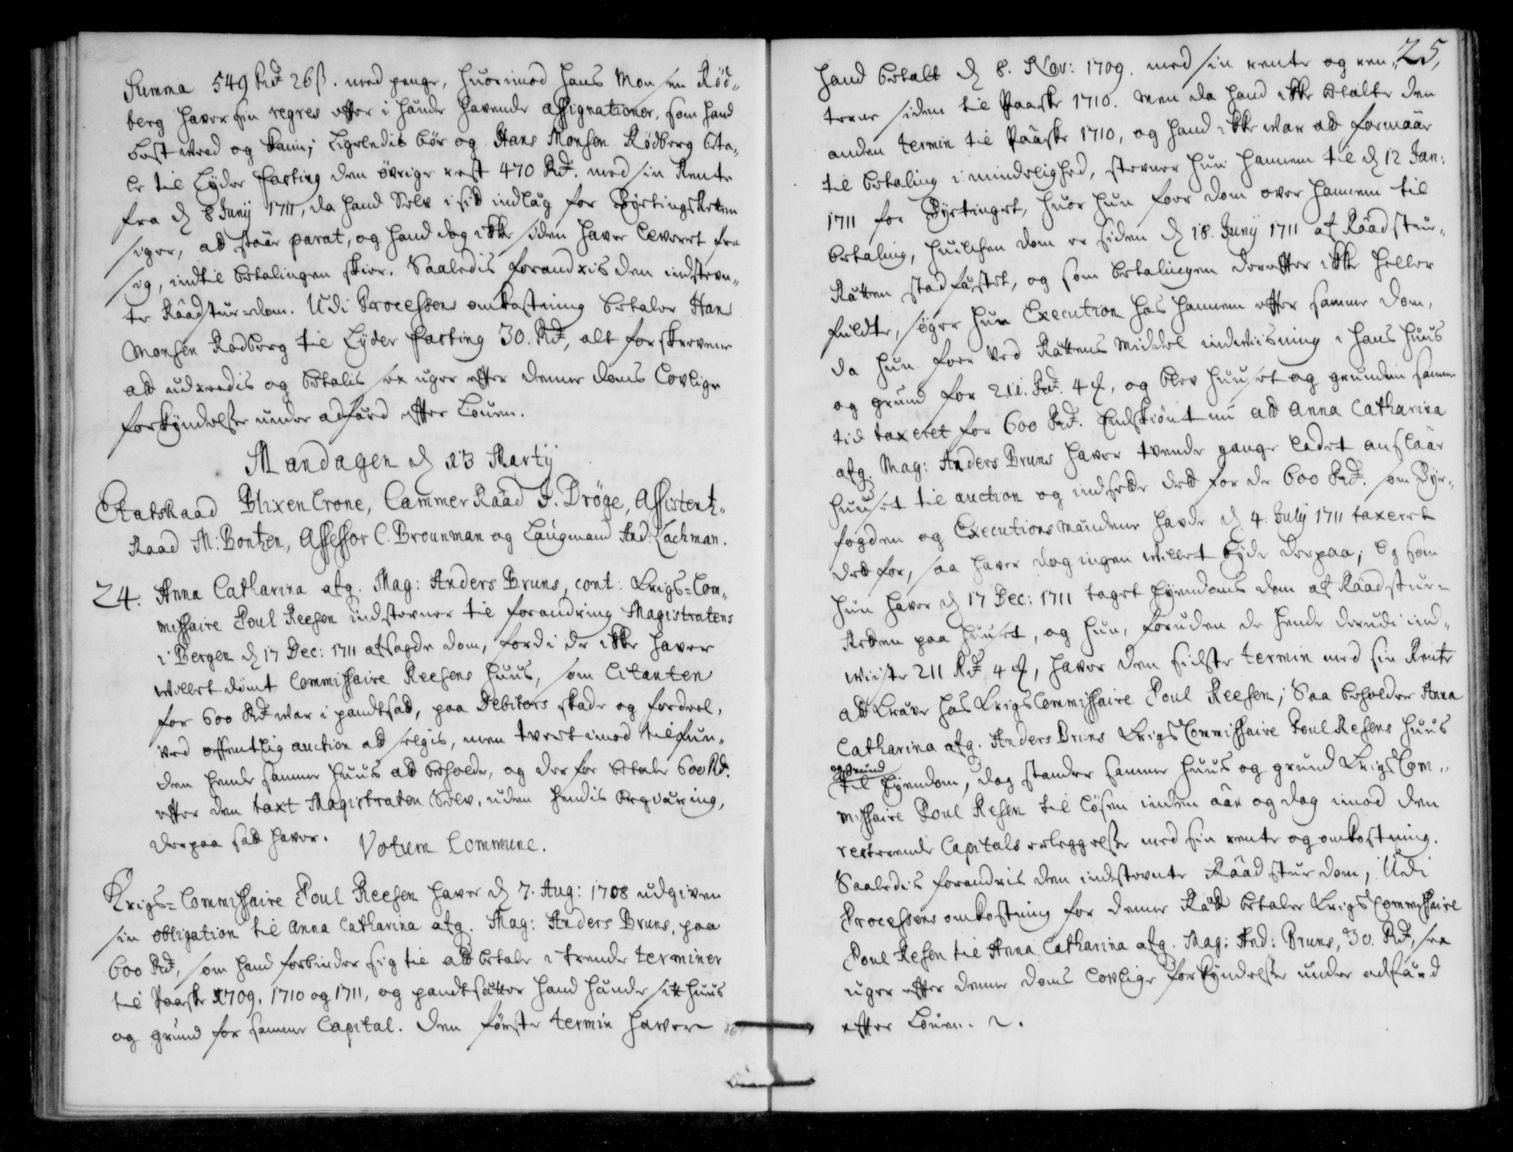 Summa 549 Rdr 26 ß. med penge, huorimod Hans Monsen Rød-
berg haver sin regres efter i hænde havende assignationer, som hand
best veed og kand; ligeledis bør og Hans Monsen Rødberg beta-
le til Lyder Fasting den øvrige rest 470 Rdr. med sin Rente
fra d 8 Junij 1711, da hand selv i sit indlæg for Byetingsretten
siger, at staar parat, og hand dog ikke siden haver leveret fra
sig, indtil betalingen skier. Saaledis forandris den indstevn-
te Raadstuedom. Udi Processens omkostning betaler Hans
Monsen Rødberg til Lyder Fasting 30. Rdr, alt forskrevne
at udredis og betalis sex uger efter denne doms lovlige
forkyndelse under adfærd efter Louen.
Mandagen d 13 Martij
Etatsraad Blixencrone, Cammer Raad J. Dröge, Assistentz-
Raad M. Bontzen, Assessor C. Brounman og Laugmand And: Lachman.
24. Anna Catharina afg. Mag: Anders Bruns, cont: Krigs-Com-
missaire Poul Reesen indstevner til forandring Magistratens
i Bergen d 17 Dec: 1711 afsagde dom, fordi de ikke haver
villet dømt Commissaire Reesens huus, som Citanten
for 600 Rdr var i pandtsat, paa Debitors skade og fordeel,
ved offentlig auction at selgis, men tvert imod tilfun-
den hende samme huus at beholde, og derfor betale 600 Rdr.
efter den taxt Magistraten selv, uden hendis begiæring,
derpaa sat haver. Votum Commune.
Krigs-Commissaire Poul Reesen haver d 7. Aug: 1708 udgiven
sin obligation til Anna Catharina afg. Mag: Anders Bruns, paa
600 Rdr, som hand forbinder sig til at betale i trende terminer
til Paaske 1709, 1710 og 1711, og pandtsætter hand hænde sit huus
og grund for samme Capital. Den første termin haver
25.
hand betalt d 8. Nov: 1709. med sin rente og ren-
terne siden til Paaske 1710. Men da hand ikke betalte den
anden termin til Paaske 1710, og hand ikke var at formaae
til betaling i mindelighed, stevner hun hannem til d 12 Jan:
1711 for Byetinget, huor hun faar dom over hannem til
betaling, huilchen dom er siden d 18. Junij 1711 af Raadstue-
Retten stadfæstet, og som betalingen derefter ikke heller
fuldte, søger hun Execution hos hannem efter samme dom,
da hun faar ved Rettens middel indviisning i hans huus
og grund for 211. Rdr. 4 ß, og blev huuset og grunden samme
tid taxeret for 600 Rdr. Endskiønt nu at Anna Catharina
afg. Mag: Anders Bruns haver tvende gange ladet anslaae
huuset til auction og indsette det for de 600 Rdr. som Bye-
fogden og Executions mændene havde d 4. Julij 1711 taxeret
det for, saa haver dog ingen villet byde derpaa; Og som
hun haver d 17 Dec: 1711 taget Eyendoms dom af Raadstue-
Retten paa huuset, og hun, foruden de hende derudi ind-
viiste 211 Rdr 4 ß, haver den sidste termin med sin Rente
at kræve hos Krigs Commissaire Poul Reesen; Saa beholder Anna
Catharina afg. Anders Bruns Krigs Commissaire Poul Resens huus
og grund
til Eyendom, dog stander samme huus og grund Krigs Com-
missaire Poul Resen til løsen inden aar og dag imod den
resterende Capitals erleggelse med sin rente og omkostning.
Saaledis forandris den indstevnte Raadstue dom; Udi
Processens omkostning for denne Ræt betaler Krigs Commissaire
Poul Resen til Anna Catharina afg. Mag: And: Bruns, 30. Rdr, sex
uger efter denne doms lovlige forkyndelse under adfærd
efter Louen.